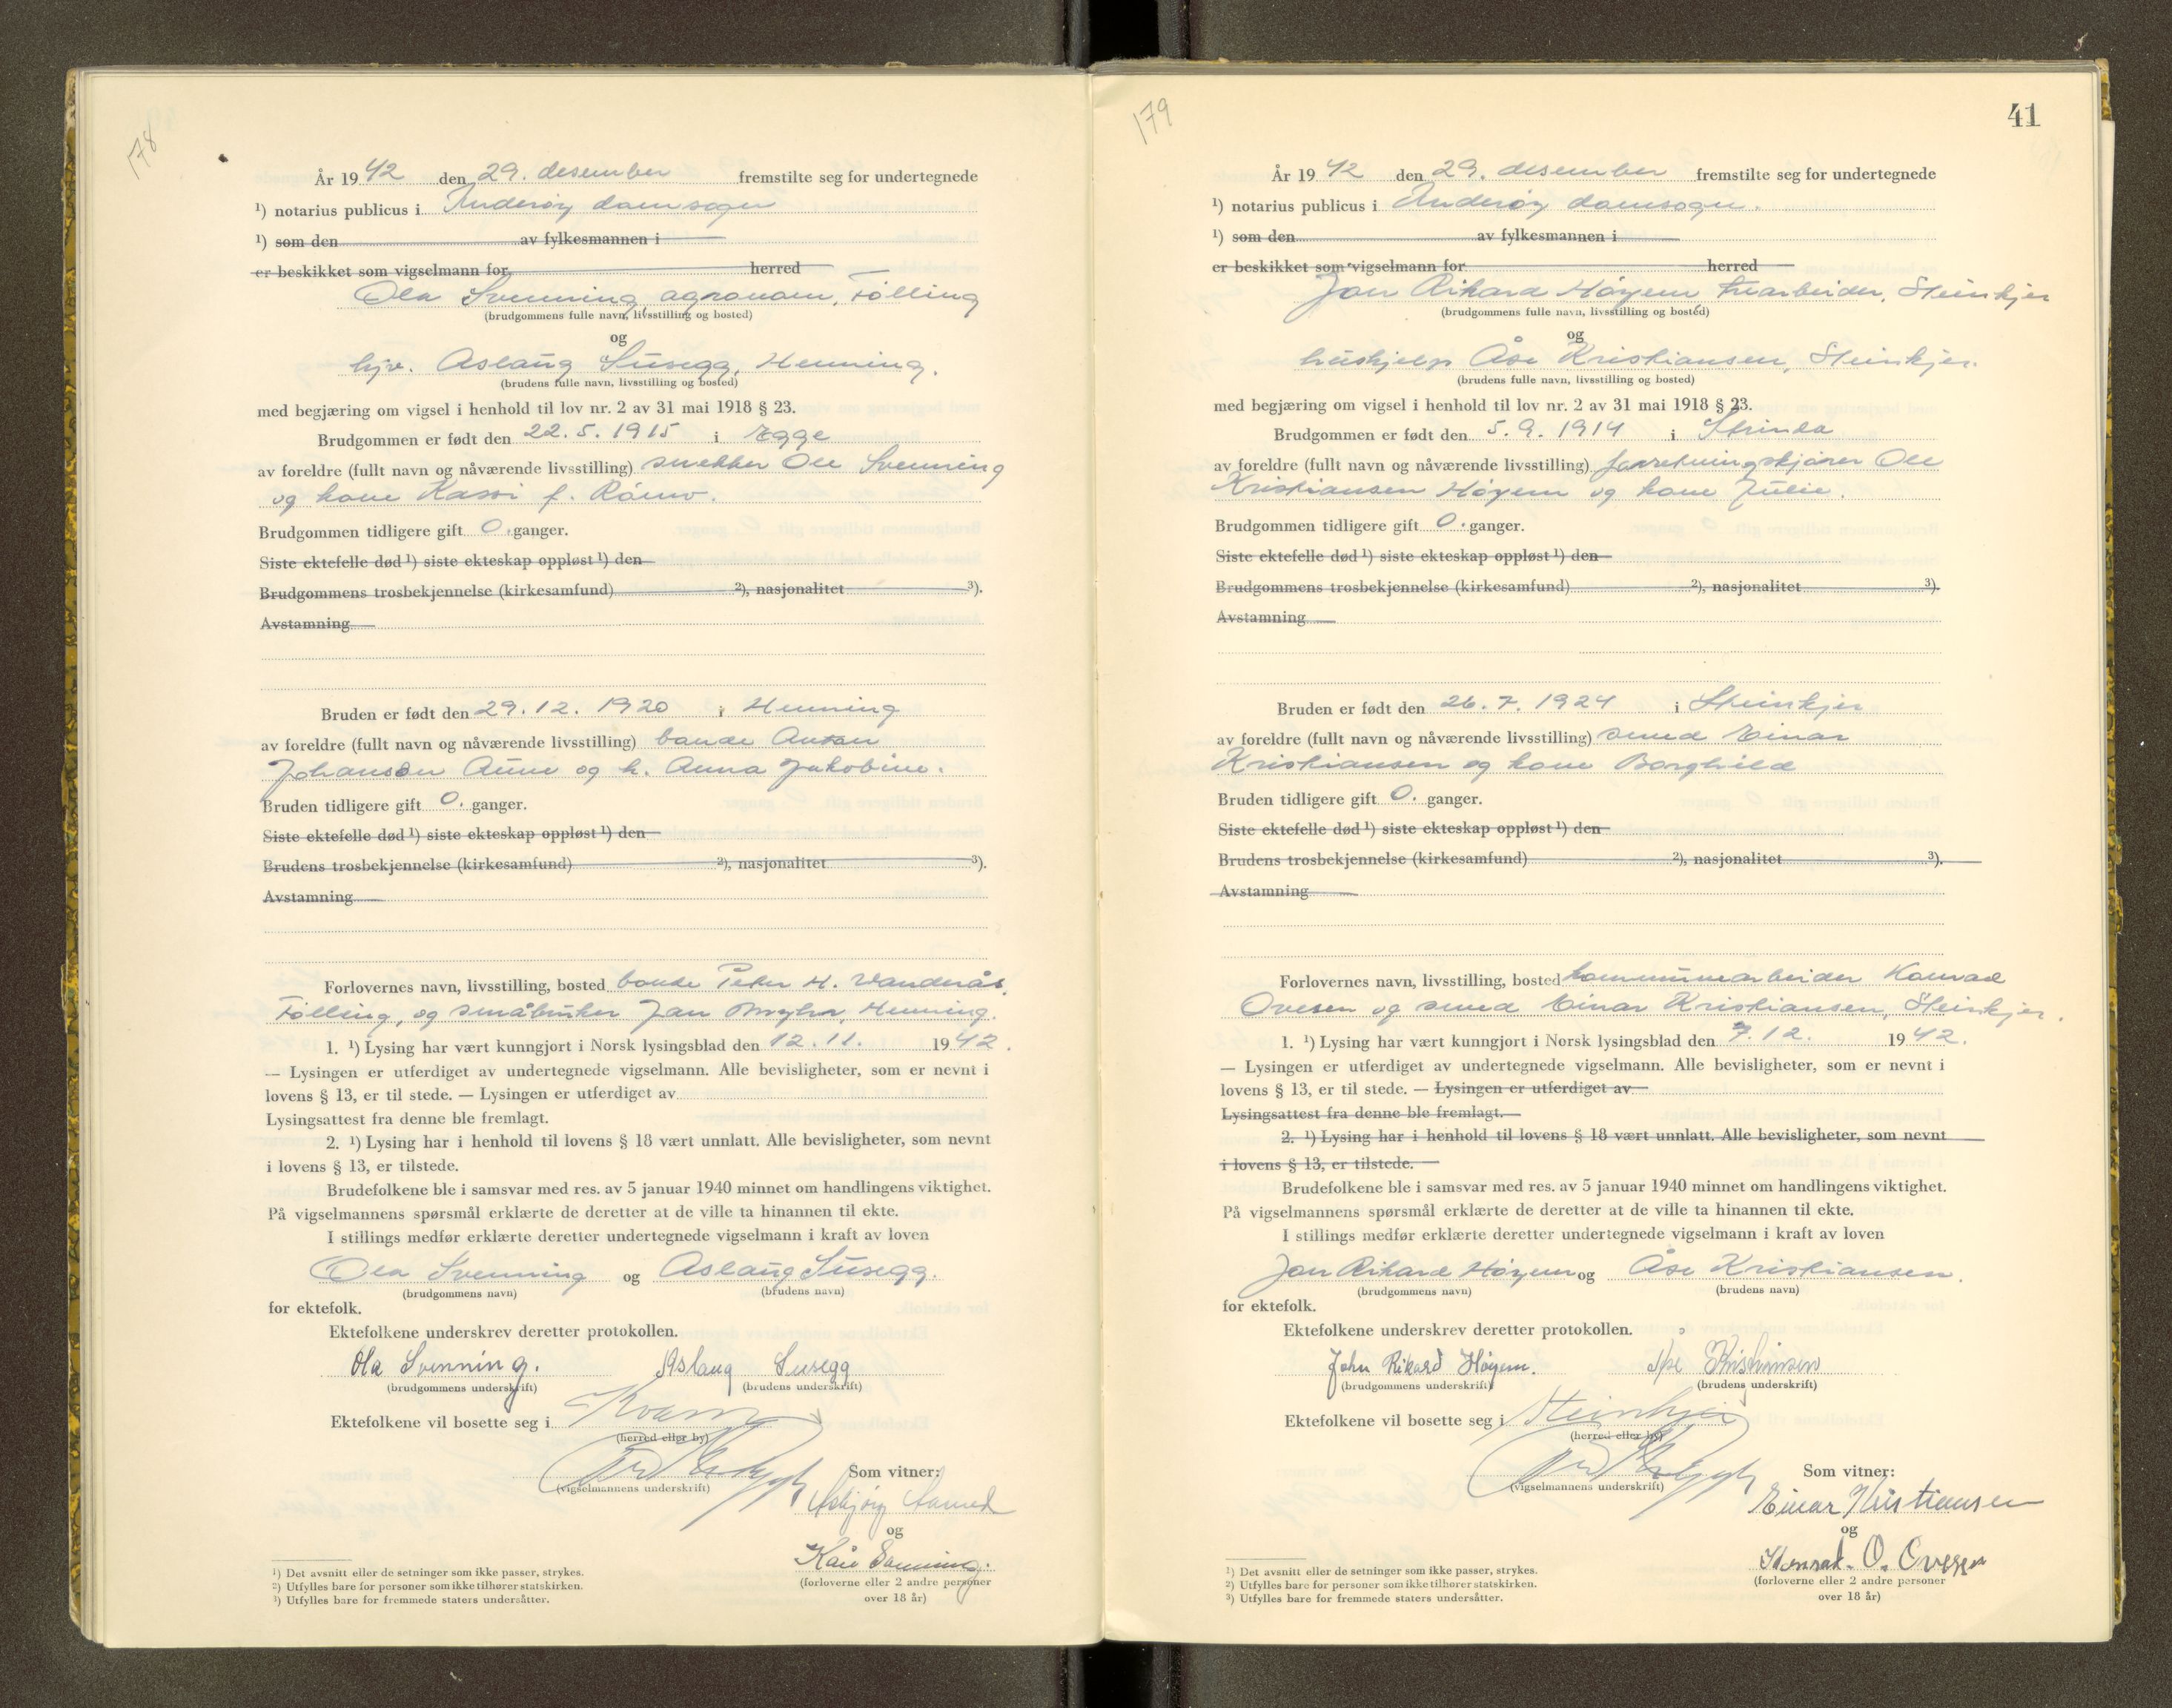 178
År 1942 den 29. desember fremstilte seg for undertegnede
¹) notarius publicus i Inderøy domsogn
¹) som den av fylkesmannen i
er beskikket som vigselmann for herred
Ola Svenning, agronom, Følling
(brudgommens fulle navn, livsstilling og bosted)
og
hjv. Aslaug Susegg, Henning.
(brudens fulle navn, livsstilling og bosted)
med begjæring om vigsel i henhold til lov nr. 2 av 31 mai 1918 § 23.
Brudgommen er født den 22.5.1915 i Egge
av foreldre (fullt navn og nåværende livsstilling) snekker Ole Svenning
og kone Kassi f. Rømo.
Brudgommen tidligere gift 0. ganger.
Siste ektefelle død ¹) siste ekteskap oppløst ¹) den
Brudgommens trosbekjennelse (kirkesamfund) ²), nasjonalitet ³).
Avstamning
Bruden er født den 29.12.1920 i Henning
av foreldre (fullt navn og nåværende livsstilling) bonde Anton
Johansen Aune og k. Anna Jakobine.
Bruden tidligere gift 0. ganger.
Siste ektefelle død ¹) siste ekteskap oppløst ¹) den
Brudens trosbekjennelse (kirkesamfund) ²), nasjonalitet ³).
Avstamning
Forlovernes navn, livsstilling, bosted bonde Peter H. Vanderås,
Følling, og småbruker Jan Henning.
1. ¹) Lysing har vært kunngjort i Norsk lysingsblad den 12.11. 1942.
— Lysingen er utferdiget av undertegnede vigselmann. Alle bevisligheter, som er nevnt i
lovens § 13, er til stede. — Lysingen er utferdiget av
Lysingsattest fra denne ble fremlagt.
2. ¹) Lysing har i henhold til lovens § 18 vært unnlatt. Alle bevisligheter, som nevnt
i lovens § 13, er tilstede.
Brudefolkene ble i samsvar med res. av 5 januar 1940 minnet om handlingens viktighet.
På vigselmannens spørsmål erklærte de deretter at de ville ta hinannen til ekte.
I stillings medfør erklærte deretter undertegnede vigselmann i kraft av loven
Ola Svenning og Aslaug Susegg.
(brudgommens navn) (brudens navn)
for ektefolk.
Ektefolkene underskrev deretter protokollen.
Ola Svenning. Aslaug Susegg
(brudgommens underskrift) (brudens underskrift)
Ektefolkene vil bosette seg i Kvam
(herred eller by)
(vigselmannens underskrift)
Som vitner:
Asbjørg
og
Kåre Svenning.
(forloverne eller 2 andre personer
over 18 år)
¹) Det avsnitt eller de setninger som ikke passer, strykes.
²) Utfylles bare for personer som ikke tilhører statskirken.
³) Utfylles bare for fremmede staters undersåtter.
179
41
År 1942 den 29. desember fremstilte seg for undertegnede
¹) notarius publicus i Inderøy domsogn.
¹) som den av fylkesmannen i
er beskikket som vigselmann for herred
Jon Rikard Høyem, trearbeider, Steinkjer
(brudgommens fulle navn, livsstilling og bosted)
og
hushjelp Åse Kristiansen, Steinkjer.
(brudens fulle navn, livsstilling og bosted)
med begjæring om vigsel i henhold til lov nr. 2 av 31 mai 1918 § 23.
Brudgommen er født den 5.9.1914 i Strinda
av foreldre (fullt navn og nåværende livsstilling) forretningskjører Ole
Kristiansen Høyem og kone Julie.
Brudgommen tidligere gift 0. ganger.
Siste ektefelle død ¹) siste ekteskap oppløst ¹) den
Brudgommens trosbekjennelse (kirkesamfund) ²), nasjonalitet ³).
Avstamning
Bruden er født den 26.7.1924 i Steinkjer
av foreldre (fullt navn og nåværende livsstilling) smed Einar
Kristiansen og kone Borghild
Bruden tidligere gift 0. ganger.
Siste ektefelle død ¹) siste ekteskap oppløst ¹) den
Brudens trosbekjennelse (kirkesamfund) ²), nasjonalitet ³).
Avstamning
Forlovernes navn, livsstilling, bosted kommunearbeider Konrad
Ovesen og smed Einar Kristiansen, Steinkjer.
1. ¹) Lysing har vært kunngjort i Norsk lysingsblad den 7.12. 1942.
— Lysingen er utferdiget av undertegnede vigselmann. Alle bevisligheter, som er nevnt i
lovens § 13, er til stede. — Lysingen er utferdiget av
Lysingsattest fra denne ble fremlagt.
2. ¹) Lysing har i henhold til lovens § 18 vært unnlatt. Alle bevisligheter, som nevnt
i lovens § 13, er tilstede.
Brudefolkene ble i samsvar med res. av 5 januar 1940 minnet om handlingens viktighet.
På vigselmannens spørsmål erklærte de deretter at de ville ta hinannen til ekte.
I stillings medfør erklærte deretter undertegnede vigselmann i kraft av loven
Jon Rikard Høyem og Åse Kristiansen.
(brudgommens navn) (brudens navn)
for ektefolk.
Ektefolkene underskrev deretter protokollen.
John Rikard Høyem. Åse Kristiansen
(brudgommens underskrift) (brudens underskrift)
Ektefolkene vil bosette seg i Steinkjer
(herred eller by)
(vigselmannens underskrift)
Som vitner:
Einar Kristiansen
og
Konrad. O. Ovesen
(forloverne eller 2 andre personer
over 18 år)
¹) Det avsnitt eller de setninger som ikke passer, strykes.
²) Utfylles bare for personer som ikke tilhører statskirken.
³) Utfylles bare for fremmede staters undersåtter.